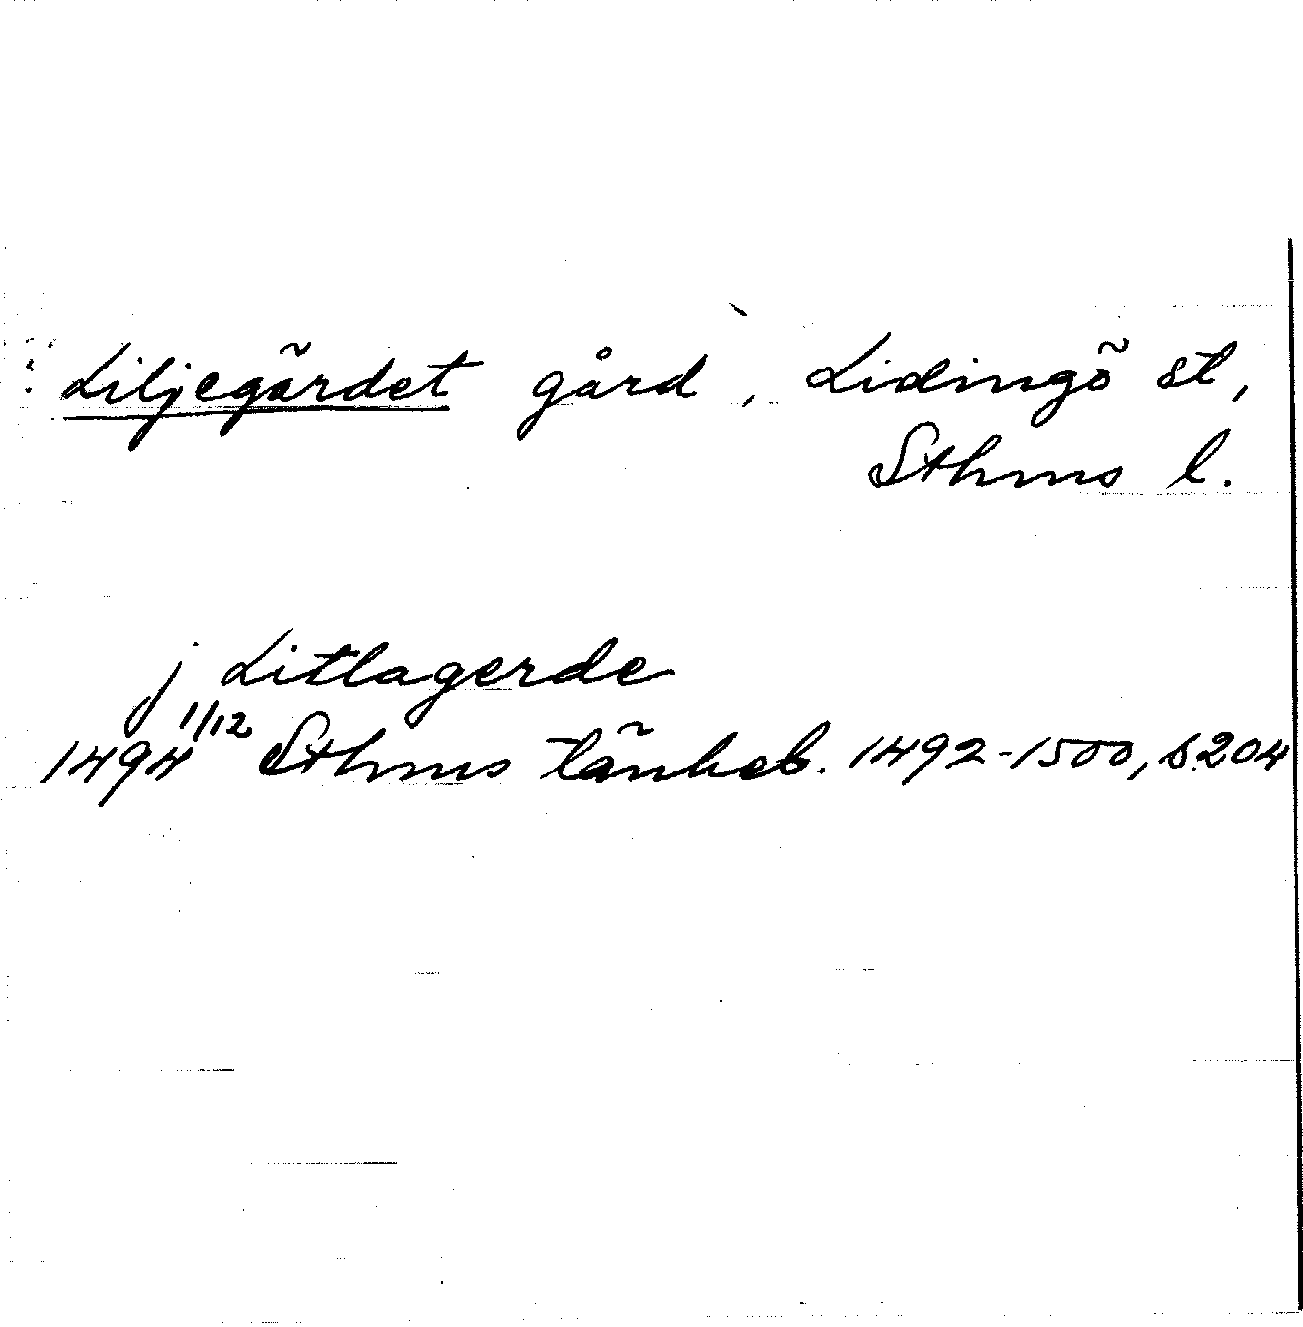 Liljegärdet gård, Lidingö st,
Sthms l.
j Litlagerde
1494 1/12 Sthms tänkeb. 1492-1500, s.204